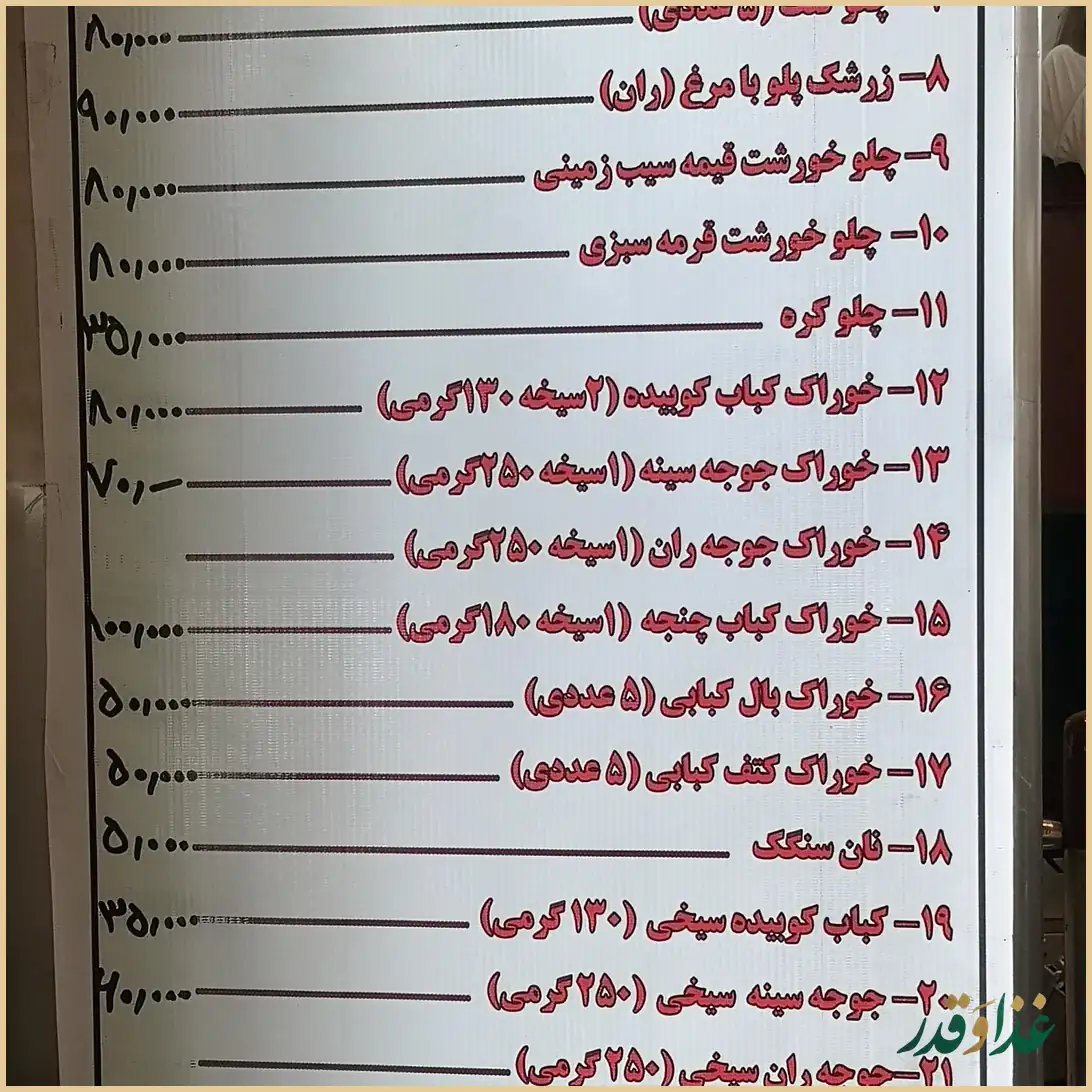 (۵ عددی) ۸۰,۰۰۰
۸- زرشک پلو با مرغ (ران) ۹۰,۰۰۰
۹- چلو خورشت قیمه سیب زمینی ۸۰,۰۰۰
۱۰- چلو خورشت قرمه سبزی ۸۰,۰۰۰
۱۱- چلو کره ۳۵,۰۰۰
۱۲- خوراک کباب کوبیده (۲سیخه ۱۳۰گرمی) ۸۰,۰۰۰
۱۳- خوراک جوجه سینه (۱سیخه ۲۵۰گرمی) ۷۰,—
۱۴- خوراک جوجه ران (۱سیخه ۲۵۰گرمی)
۱۵- خوراک کباب چنجه (۱سیخه ۱۸۰گرمی) ۱۰۰,۰۰۰
۱۶- خوراک بال کبابی (۵ عددی) ۵۰,۰۰۰
۱۷- خوراک کتف کبابی (۵ عددی) ۵۰,۰۰۰
۱۸- نان سنگک ۵,۰۰۰
۱۹- کباب کوبیده سیخی (۱۳۰ گرمی) ۳۵,۰۰۰
۲۰- جوجه سینه سیخی (۲۵۰ گرمی) ۶۰,۰۰۰
۲۱- جوجه ران سیخی (۲۵۰ گرمی)
غذا و قدر